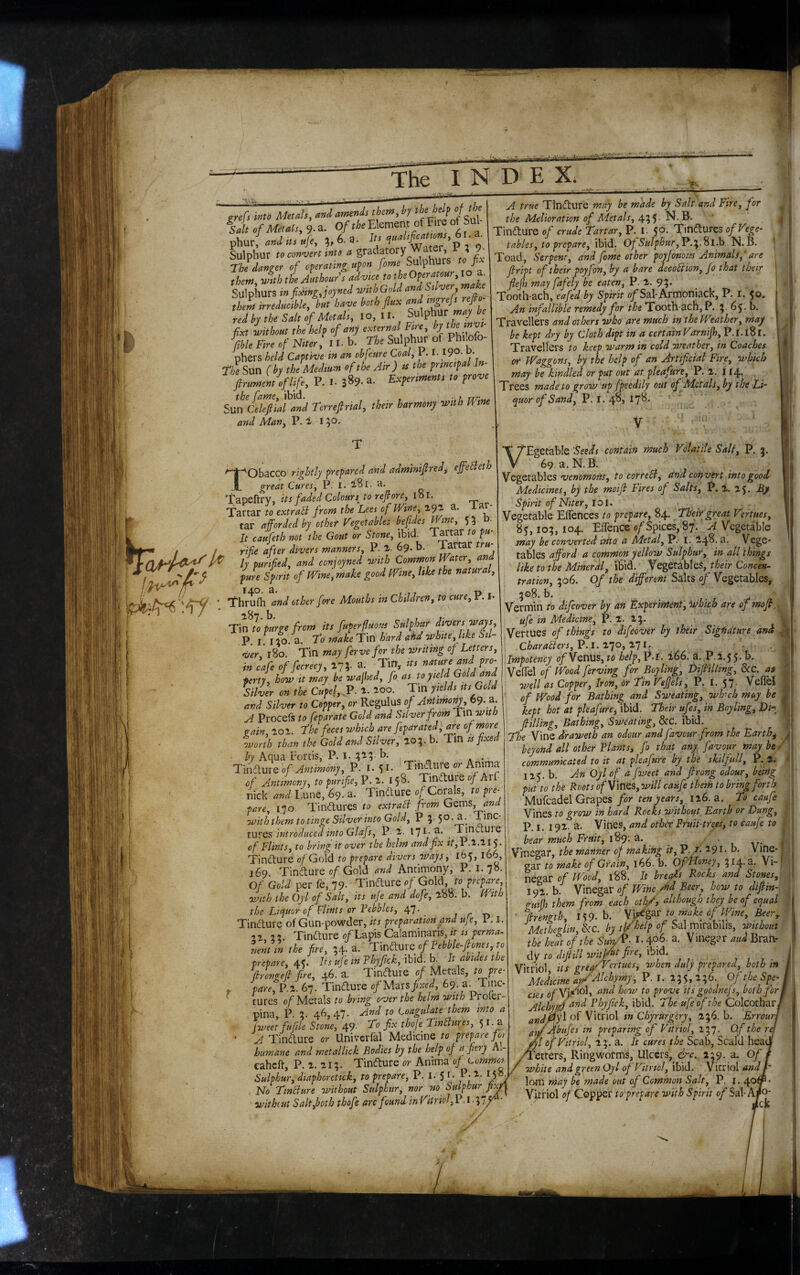 The INDEX.
gress into Metals, and amends them, by the help of the
Salt of Metals, 9. a. Of the Element of Fire of Sul-
phur, and its use, 3, 6. a. Its qualifications, 61. a.
Sulphur to convert into a gradatory Water, P 3 9.
The danger of operating upon some Sulphurs to fix
them, with the Authour's advice to the Operatour, 10 a.
Sulphurs in fixing, joyned with Gold and Silver, make
them irreducible, but have both flux and ingress resto-
red by the Salt of Metals, 10, 11. Sulphur may be
fixt without the help of any external Fire, by the invi-
sible Fire of Niter, 11. b. The Sulphur of Philoso-
phers held Captive in an obscure Coal, P. 1. 190. b.
The Sun (by the Medium of the Air) is the principal In-
strument of life, P. 1. 389. a. Experiments to prove
the same, ibid.
Sun Celestial and Terrestrial, their harmony with Wine
and Man, P. 2 130.
T
TObacco rightly prepared and administred, effecteth
great Cures, P. 1. 281. a.
Tapestry, its faded Colours to restore, 181.
Tartar to extract from the Lees of Wine, 292 a. Tar-
tar afforded by other Vegetables besides Wine, 53 b.
It causeth not the Gout or Stone, ibid. Tartar to pu-
rifie after divers manners, P. 2. 69. b. Tartar tru-
ly purified, and conjoyned with Common Water, and
pure Spirit of Wine, make good Wine, like the natural,
140. a.
Thrush and other sore Mouths in Children, to cure, P. 1.
287. b.
Tin to purge from its superfluous Sulphur divers ways,
P. 1. 130. a. To make Tin hard and white, like Sil-
ver, 180. Tin may serve for the writing of Letters,
in case of secrecy, 273. a. Tin, its nature and pro-
perty, how it may be washed, so as to yield Gold and
Silver on the Cupel, P. 2. 200. Tin yields its Gold
and Silver to Copper, or Regulus of Antimony, 69. a.
A Process to separate Gold and Silver from Tin with
gain, 202. The feces which are separated, are of more
worth than the Gold and Silver, 203. b. Tin is fixed
by Aqua Fortis, P. 1. 323 b.
Tincture of Antimony, P. 1. 51. Tincture or Anima
of Antimony, to purifie, P. 2. 158. Tincture of Arse-
nick and Lune, 69. a. Tincture of Corals, to pre-
pare, 170 Tinctures to extract from Gems, and
with them to tinge Silver into Gold, P 3. 50. a. Tinc-
tures introduced into Glass, P 2. 171. a. Tincture
of Flints, to bring it over the helm and fix it, P. 2. 215.
Tincture of Gold to prepare divers ways, 165, 166,
169. Tincture of Gold and Antimony, P. 1. 78.
Of Gold per se, 79. Tincture of Gold, to prepare,
with the Oyl of Salt, its use and dose, 288. b. With
the Liquor of Flints or Pebbles, 47.
Tincture of Gun-powder, its preparation and use, P. 1.
32, 33. Tincture of Lapis Calaminaris, it is perma-
nent in the fire, 34. a. Tincture of Pebble-stones, to
prepare, 45. Its use in Physick, ibid. b. It abides the
strongest fire, 46. a. Tincture of Metals, to pre-
pare, P. 2. 67. Tincture of Mars fixed, 69. a. Tinc-
tures of Metals to bring over the helm with Proser-
pina, P. 3. 46, 47. And to Coagulate them into a
sweet fusile Stone, 49. To fix those Tinctures, 51. a
A Tincture or Universal Medicine to prepare for
humane and metallick Bodies by the help of a fiery Al-
cahest, P. 2. 213. Tincture or Anima of Common
Sulphur, diaphoretick, to prepare, P. 1. 51. P. 2. 158.
No Tincture without Sulphur, nor no Sulphur fixt
without Salt, both those are found in Vitriol, P. 1. 37
A true Tincture may be made by Salt and Fire, for
the Melioration of Metals, 435. N. B.
Tincture of crude Tartar, P. 1. 50. Tinctures of Vege-
tables, to prepare, ibid. Of Sulphur, P. 3. 81. b N. B.
Toad, Serpent, and some other poysonous Animals, are
stript of their poyson, by a bare decoction, so that their
flesh may safely be eaten, P. 2. 93.
Tooth-ach, eased by Spirit of Sal-Armoniack, P. 1. 50.
An infallible remedy for the Tooth ach, P. 3. 65. b.
Travellers and others who are much in the Weather, may
be kept dry by Cloth dipt in a certain Varnish, P. 1. 181.
Travellers to keep warm in cold weather, in Coaches
or Waggons, by the help of an Artificial Fire, which
may be kindled or put out at pleasure, P. 2. 114.
Trees made to grow up speedily out of Metals, by the Li-
quor of Sand, P. 1. 48, 178.
V
VEgetable Seeds contain much Volatile Salt, P. 3.
69 a. N. B.
Vegetables venomous, to correct, and convert into good
Medicines, by the moist Fires of Salts, P. 2. 25. By
Spirit of Niter, 101.
Vegetable Essences to prepare, 84. Their great Vertues,
85, 103, 104. Essence of Spices, 87. A Vegetable
may be converted into a Metal, P. 1. 248. a. Vege-
tables afford a common yellow Sulphur, in all things
like to the Mineral, ibid. Vegetables, their Concen-
tration, 306. Of the different Salts of Vegetables,
308. b.
Vermin to discover by an Experiment, which are of most
use in Medicine, P. 2. 23.
Vertues of things to discover by their Signature and
Characters, P. 1. 270, 271.
Impotency of Venus, to help, P. 1. 266. a. P. 2. 55. b.
Vessel of Wood serving for Boyling, Distilling, &c. as
well as Copper, Iron, or Tin Vessels, P. 1. 57. Vessel
of Wood for Bathing and Sweating, which may be
kept hot at pleasure, ibid. Their uses, in Boyling, Di-
stilling, Bathing, Sweating, &c. ibid.
The Vine draweth an odour and savour from the Earth,
beyond all other Plants, so that any savour may be
communicated to it at pleasure by the skilfull, P. 2.
125. b. An Oyl of a sweet and strong odour, being
put to the Roots of Vines, will cause them to bring forth
Muscadel Grapes for ten years, 126. a. To cause
Vines to grow in hard Rocks without Earth or Dung,
P. 1. 192. a. Vines, and other Fruit-trees, to cause to
bear much Fruit, 189. a.
Vinegar, the manner of making it, P. 1. 291. b. Vine-
gar to make of Grain, 166. b. Of Honey, 314. a. Vi-
negar of Wood, 188. It breaks Rocks and Stones,
192. b. Vinegar of Wine and Beer, how to distin-
guish them from each other, although they be of equal
strength, 159. b. Vinegar to make of Wine, Beer,
Metheglin, &c. by the help of Sal-mirabilis, without
the heat of the Sun, P. 1. 406. a. Vinegar and Bran-
dy to distill without fire, ibid.
Vitriol, its great Vertues, when duly prepared, both in
Medicine and Alchymy, P. 1. 235, 236. Of the Spe-
cies of Vitriol, and how to prove its goodness, both for
Alchymy and Physick, ibid. The use of the Colcothar
and Oyl of Vitriol in Chyrurgery, 236. b. Errours
and Abuses in preparing of Vitriol, 237. Of the re
Oyl of Vitriol, 23. a. It cures the Scab, Scald head
Tetters, Ringworms, Ulcers, &c. 239. a. Of
white and green Oyl of Vitriol, ibid. Vitriol and
lom may be made out of Common Salt, P. 1. 40
Vitriol of Copper to prepare with Spirit of Sal-Armo-
nack